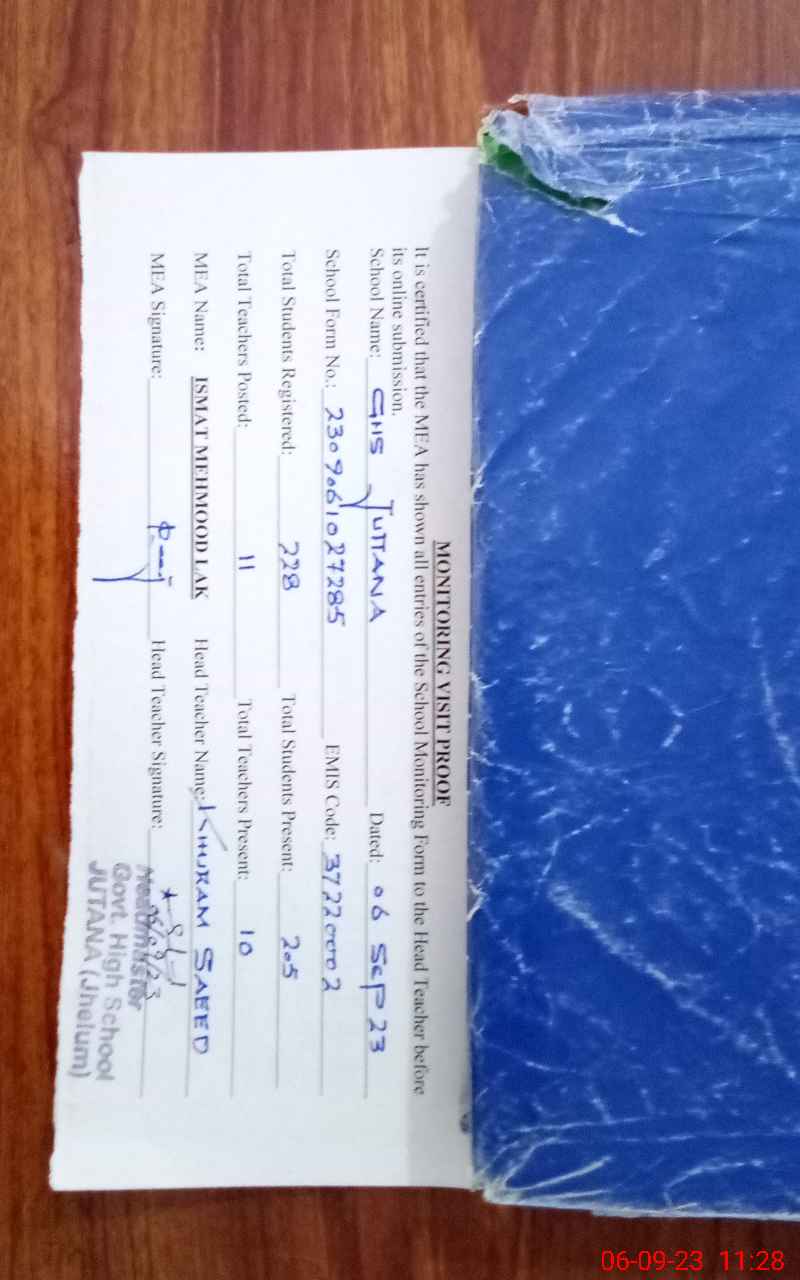 MONITORING VISIT PROOF
It is certified that the MEA has shown all entries of the School Monitoring Form to the Head Teacher before
its online submission.
School Name: GHS JUTTANA Dated: 06 Sep 23
School Form No.: 2309061027285 EMIS Code: 37220002
Total Students Registered: 228 Total Students Present: 205
Total Teachers Posted: 11 Total Teachers Present: 10
MEA Name: ISMAT MEHMOOD LAK Head Teacher Name: KHURAM SAEED
MEA Signature: Head Teacher Signature:
06/09/23
Headmaster
Govt. High School
JUTANA (Jhelum)
06-09-23 11:28